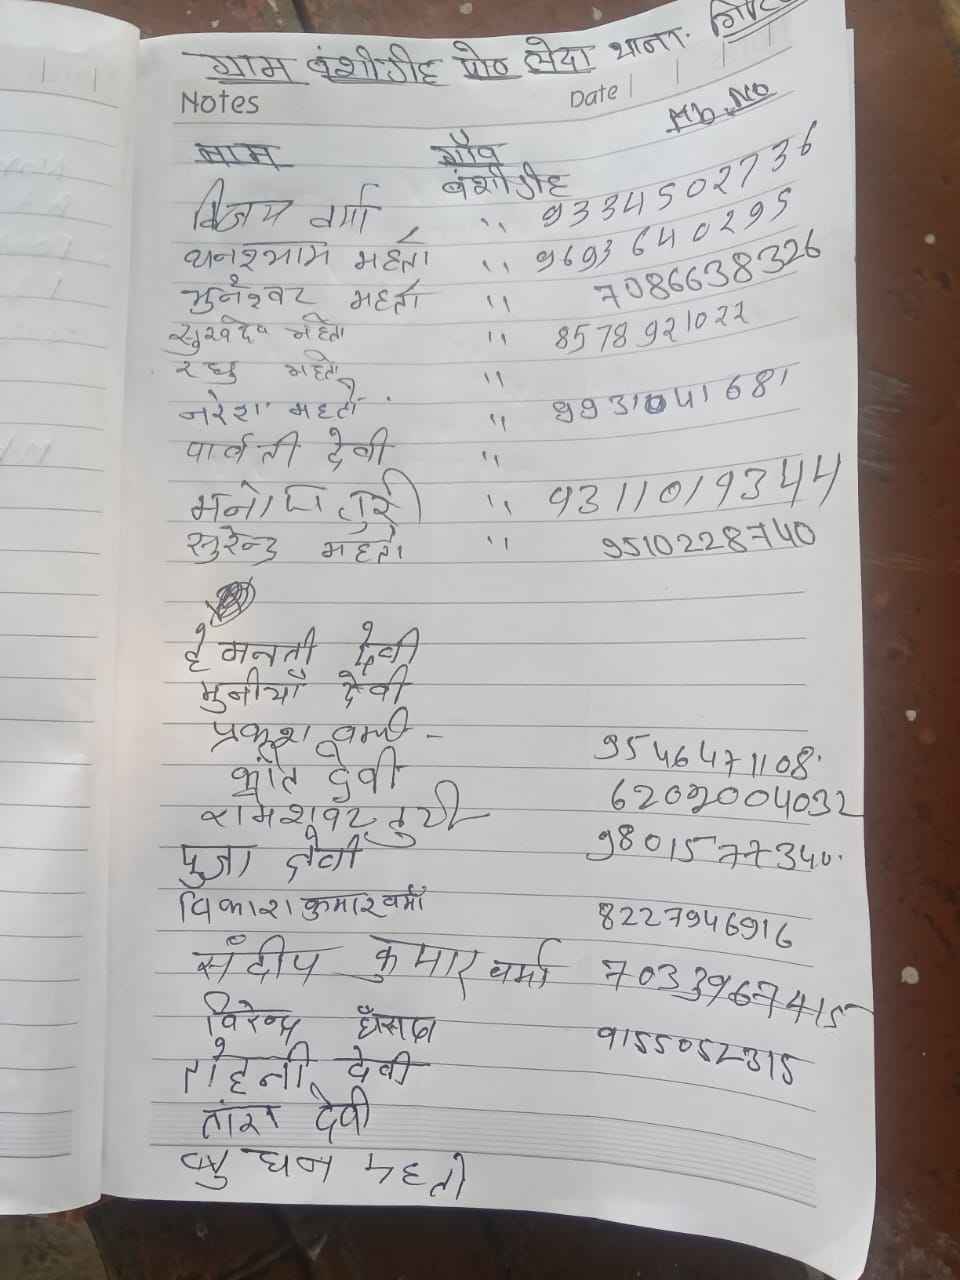 ग्राम बंशीडीह पो० लेदा थाना.
Notes Date
नाम गाँव Mb.No
बंशीडीह
विजय वर्मा ,, 9334502736
धनश्याम महतो ,, 9693640295
मुनेश्वर महतो ,, 7086638326
सुखदेव महतो ,, 8578921022
रघु महतो ,,
नरेश महतो ,, 9931041681
पार्वती देवी ,,
मनोज तुरी ,, 9311019344
सुरेन्द्र महतो ,, 9510228740
हेमन्ती देवी
मुनीयाँ देवी
प्रकाश वर्मा - 9546471108.
देवी
रामेशवर तुरी 6209004032
पुजा देवी 9801577340.
विकाश कुमार वर्मा 8227946916
संदीप कुमार वर्मा 7033967415
विरेन्द्र 9155052315
देवी
तारा देवी
बुधन महतो